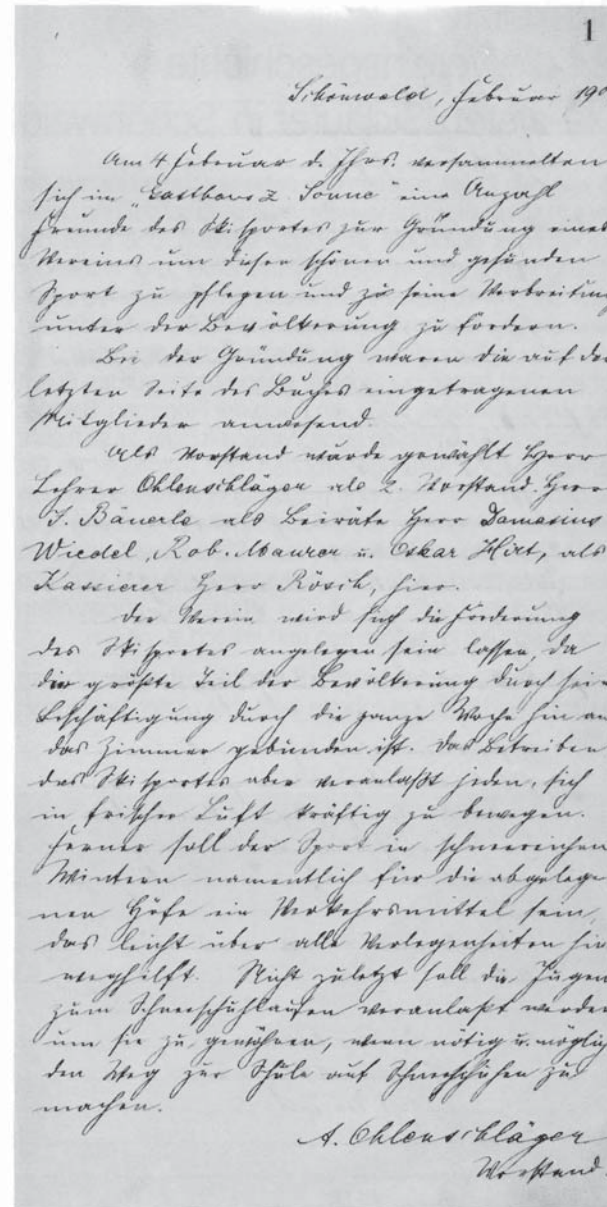 1
Schönwald, Februar 190
Am 4 Februar d. Jhrs. versammelten
sich im „Gasthaus z. Sonne" eine Anzahl
Freunde des Skisportes zur Gründung eines
Vereins um diesen schönen und gesunden
Sport zu pflegen und zu seine Verbreitung
unter der Bevölkerung zu fördern.
Bei der Gründung waren die auf der
letzten Seite des Buches eingetragenen
Mitglieder anwesend.
Als Vorstand wurde gewählt Herr
Lehrer Ohlenschläger als 2. Vorstand. Herr
J. Bäuerle als Beiräte Herr Damasius
Wiedel, Rob. Maurer u. Oskar Hirt, als
Kassierer Herr Rösch, hier.
Der Verein wird sich die Förderung
des Skisportes angelegen sein lassen, da
der größte Teil der Bevölkerung durch sein
Beschäftigung durch die ganze Woche hin an
das Zimmer gebunden ist. Das Betreiben
des Skisportes aber veranlaßt jeden, sich
in frischer Luft kräftig zu bewegen.
Ferner soll der Sport in schneereichen
Wintern namentlich für die abgelege
nen Höfe ein Verkehrsmittel sein,
das leicht über alle Verlegenheiten hin
weghilft. Nicht zuletzt soll die Jugen
zum Schneeschuhlaufen veranlaßt werden
um sie zu gewöhnen, wenn nötig u. möglich
den Weg zur Schule auf Schneeschuhen zu
machen.
A. Ohlenschläger
Vorstand.